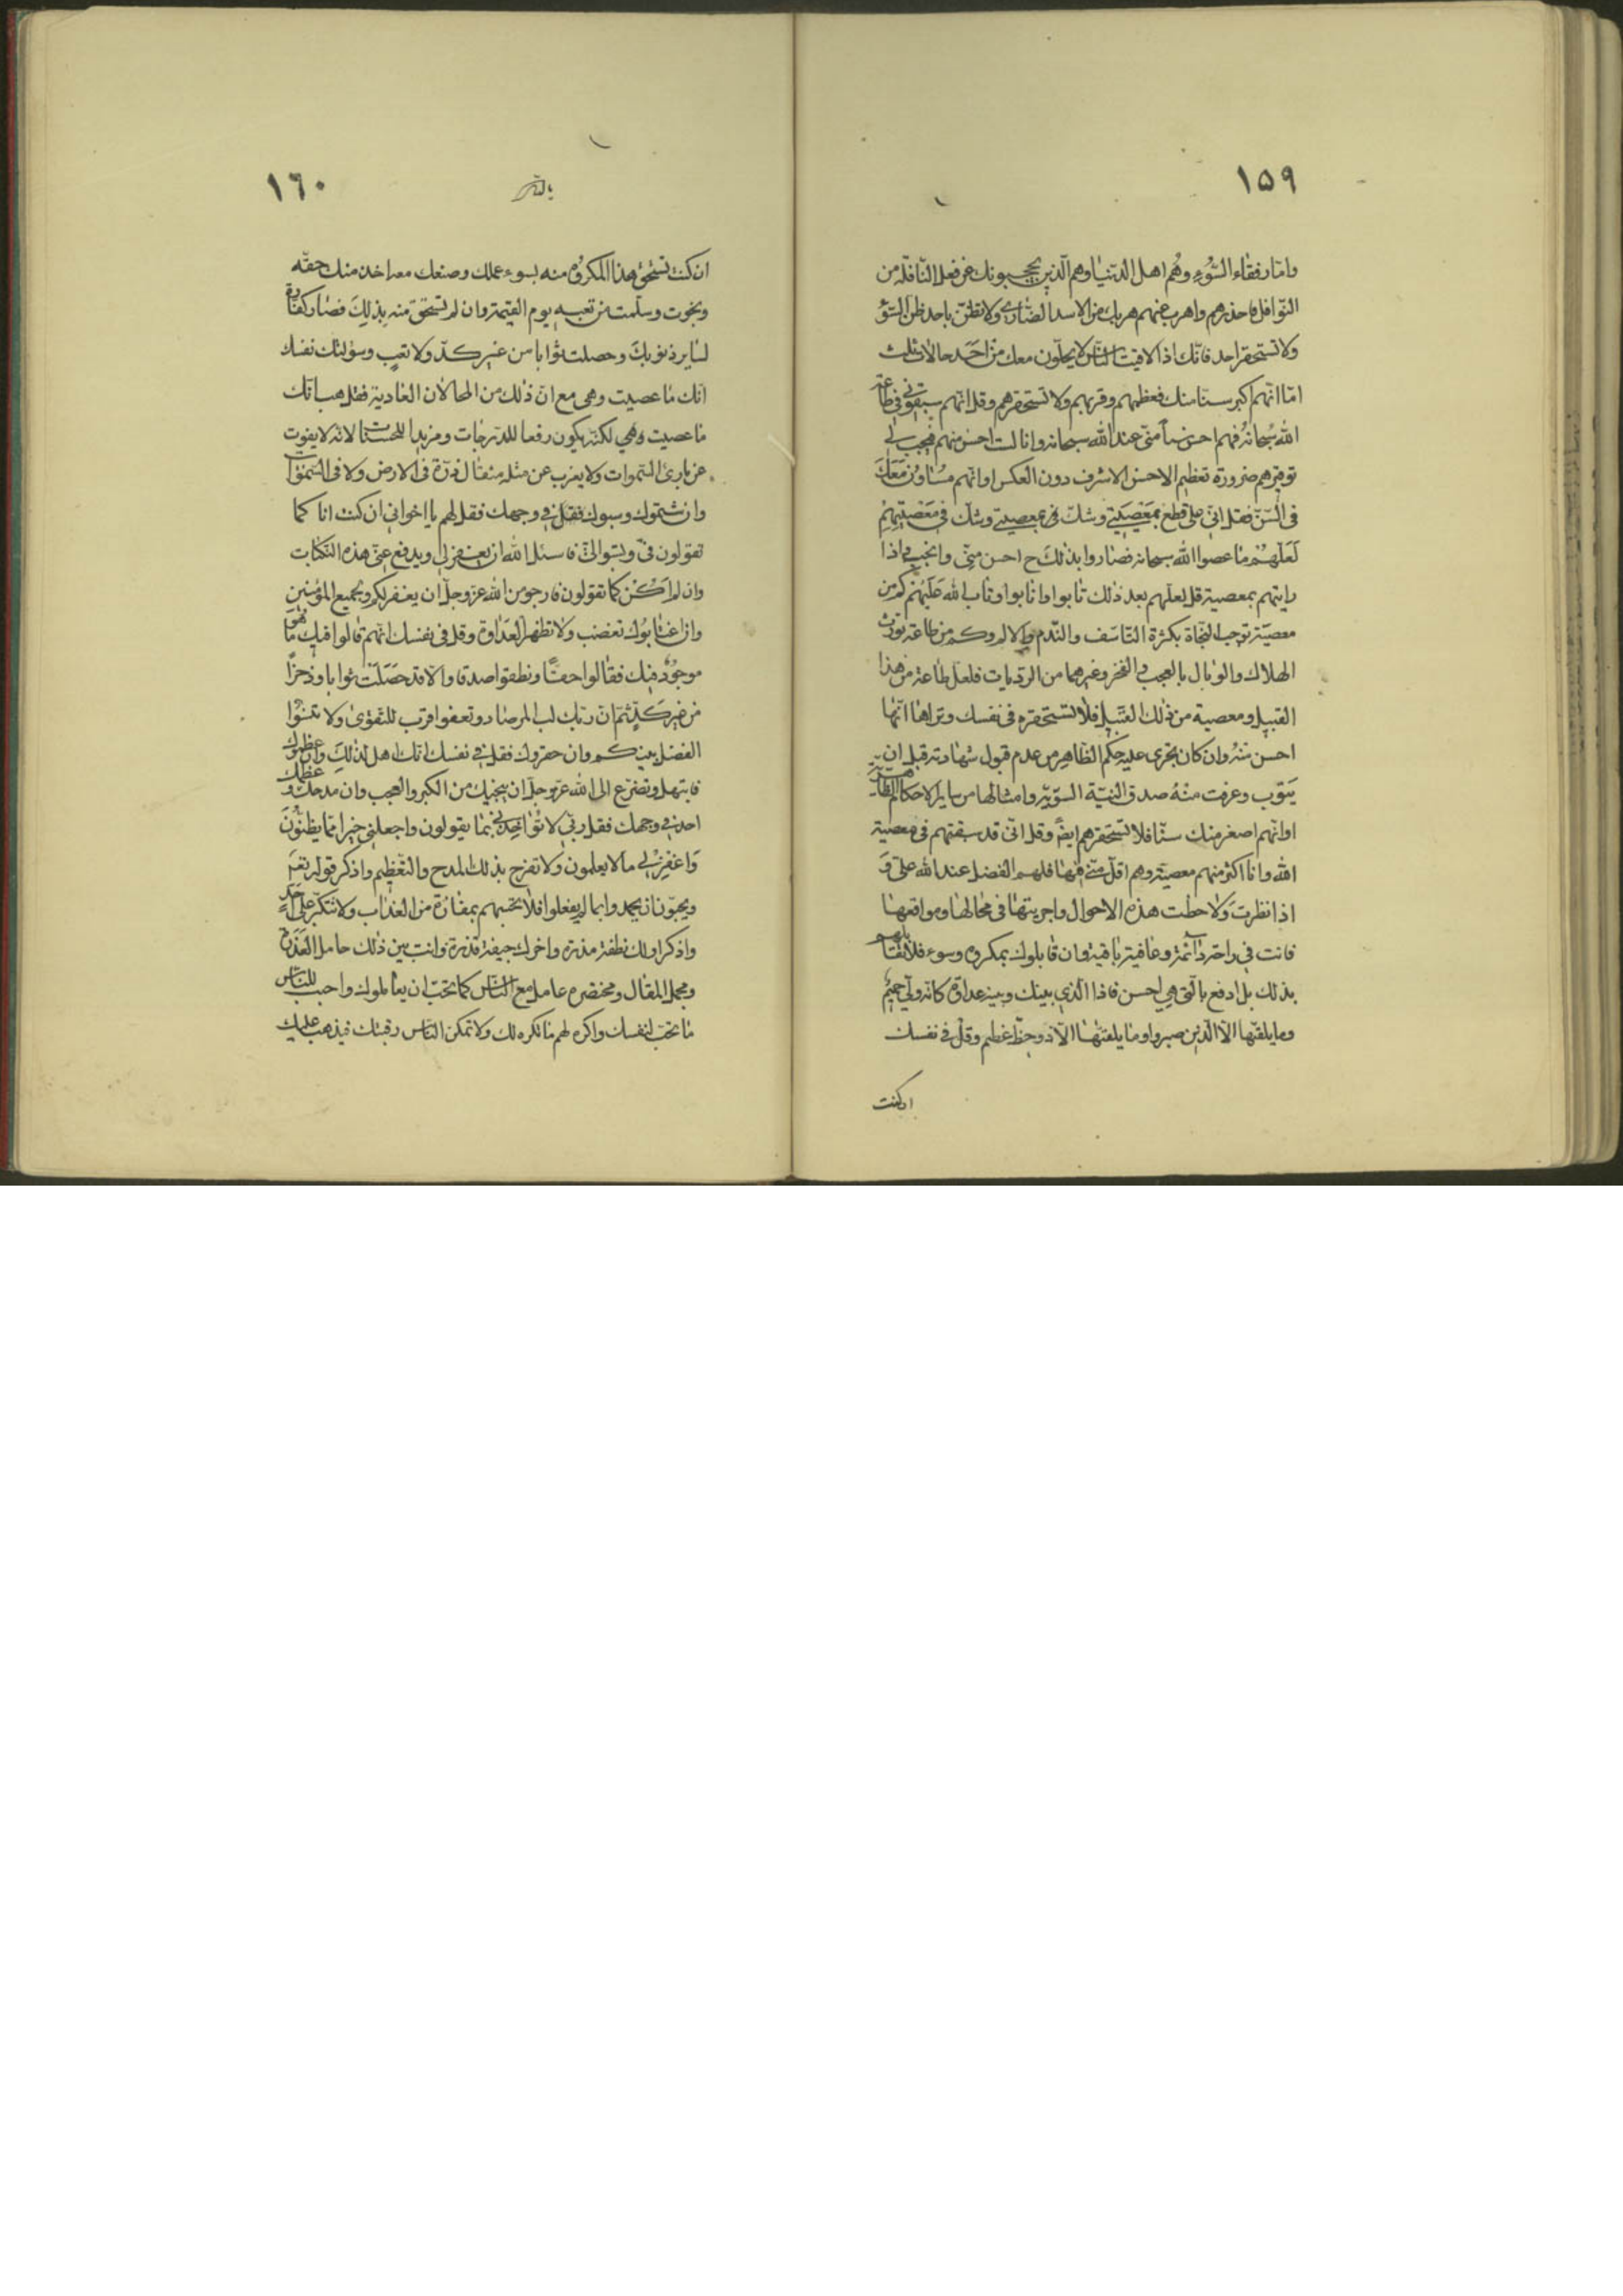 ١٥٩
واما رفقاء السّوء وهم اهل الدّنيا وهم الّذين يحجبونك عن فعل النّافلة من
النّوافل فاحذرهم واهرب عنهم هربك من الاسد الضّارى ولا تظنّ باحد ظنّ السّوء
ولا تستحقر احد فانّك اذا لاقيت النّاس لا يخلون معك من احد حالات ثلث
امّا انّهم اكبر سنّا منك فعظّمهم وقرّبهم ولا تستحقرهم وقل انّهم سبقونى فى طاعة
الله سبحانه فهم احسن منّى عند الله سبحانه وانا لست احسن منهم فيجب لى
توقيرهم ضرورة تعظيم الاحسن الاشرف دون العكس او انّهم مساوون معك
فى السّنّ فقل انّى على قطع بمعصيتى وشكّ فى معصيتهم
لعلّهم ما عصوا الله سبحانه فصاروا بذلك ح احسن منّى واذا
رايتهم بمعصية قل لعلّهم بعد ذلك تابوا وانابوا وتاب الله عليهم كم من
معصية توجب النّجاة بكثرة التّاسّف والنّدم والالم وكم من طاعة تورث
الهلاك والوبال بالعجب والفخر وغيرهما من الرّديات فلعلّ طاعته من هذا
القبيل ومعصيته من ذلك القبيل فلا تستحقره فى نفسك وتراها انّها
احسن منه وان كان يجرى عليه حكم الظّاهر من عدم قبول شهادته قبل ان
يتوب وعرفت منه صدق النيّة السّويّة وامثالها من ساير الاحكام الظّاهريّة
او انّهم اصغر منك سنّا فلا تستحقرهم ايضً وقل انّى قد سبقتهم فى معصية
الله وانا اكثر منهم معصية وهم اقلّ منّى فيها فلهم الفضل عند الله علىّ و
اذا نظرت ولاحظت هذه الاحوال واجريتها فى محالها ومواقعها
فانت فى راحة دائمة وعافية باقية وان قابلوك بمكروه وسوء فلا تقابلهم
بذلك بل ادفع بالّتى هى احسن فاذا الّذى بينك وبينه عداوة كانّه ولىّ حميم
وما يلقّيها الّا الّذين صبروا وما يلقّيها الّا ذو حظّ عظيم وقل فى نفسك
ان كنت
١٦٠
ان كنت تستحقّ هذا المكروه منه بسوء عملك وصنعك معه اخذ منك حقّه
ونجوت وسلمت من تعبه يوم القيمة وان لم تستحقّ منه بذلك فصار كفّارة
لساير ذنوبك وحصلت ثوابا من غير كدّ ولا تعب وسوّلتك نفسك
انّك ما عصيت وهى مع انّ ذلك من المحالات العادية فقل هب انّك
ما عصيت وهى لكنّه يكون رفعا للدّرجات ومزيدا للحسنات لانّه لا يفوت
عن بارئ السّموات ولا يعزب عن مثله مثقال ذرّة فى الارض ولا فى السّموات
وان شتموك وسبوك فقل فى وجهك فقل لهم يا اخوانى ان كنت انا كما
تقولون فىّ فاسئل الله ان يغفر لى ويدفع عنّى هذه النّكبات
وان لم اكن كما تقولون فارجو من الله عزّ وجلّ ان يغفر لكم ولجميع المؤمنين
وان اغتابوك تغضب ولا تظهر العداوة وقل فى نفسك انّهم قالوا فيك ما هو
موجود فيك فقالوا حقّا ونطقوا صدقا والّا فقد حصّلت ثوابا وذخرًا
من غير كدّ ثمّ انّ ربّك لبالمرصاد وتعفوا اقرب للتّقوى ولا تنسوا
الفضل بينكم وان حقروك فقل فى نفسك انّك اهل لذلك وان عظّموك
فابتهل وتضرّع الى الله عزّ وجلّ ان ينجيك من الكبر والعجب وان مدحك وعظّمك
احد فى وجهك فقل ربّى لا تؤاخذنى بما يقولون واجعلنى خيرا ممّا يظنّون
واغفر لى ما لا يعلمون ولا تفرح بذلك المدح والتّعظيم واذكر قوله تعم
ويحبّون ان يحمدوا بما لم يفعلوا فلا تحسبهم بمفازة من العذاب ولا تتكبّر على احد
واذكر اولك نطفة مذرة واخرك جيفة قذرة وانت بين ذلك حامل العذرة
ومجمل المقال ومختصره عامل مع النّاس كما تحبّ ان يعاملوك واحبب للنّاس
ما تحبّ لنفسك واكره لهم ما تكره لك ولا تمكن النّاس رقبتك فيذهب عليك